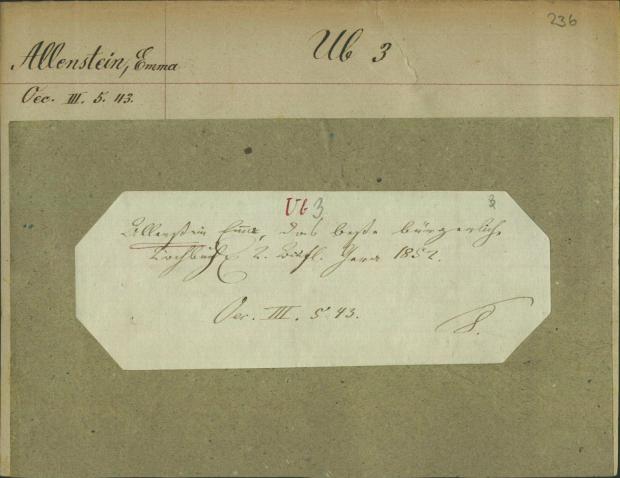 236
Ub 3
Allenstein, Emma
Oec. III. 5. 43.
Ub 3
Allenstein Emma, das beste bürgerliche
Kochbuch 2. Aufl. Gera 1852.
Oec. III. 5. 43.